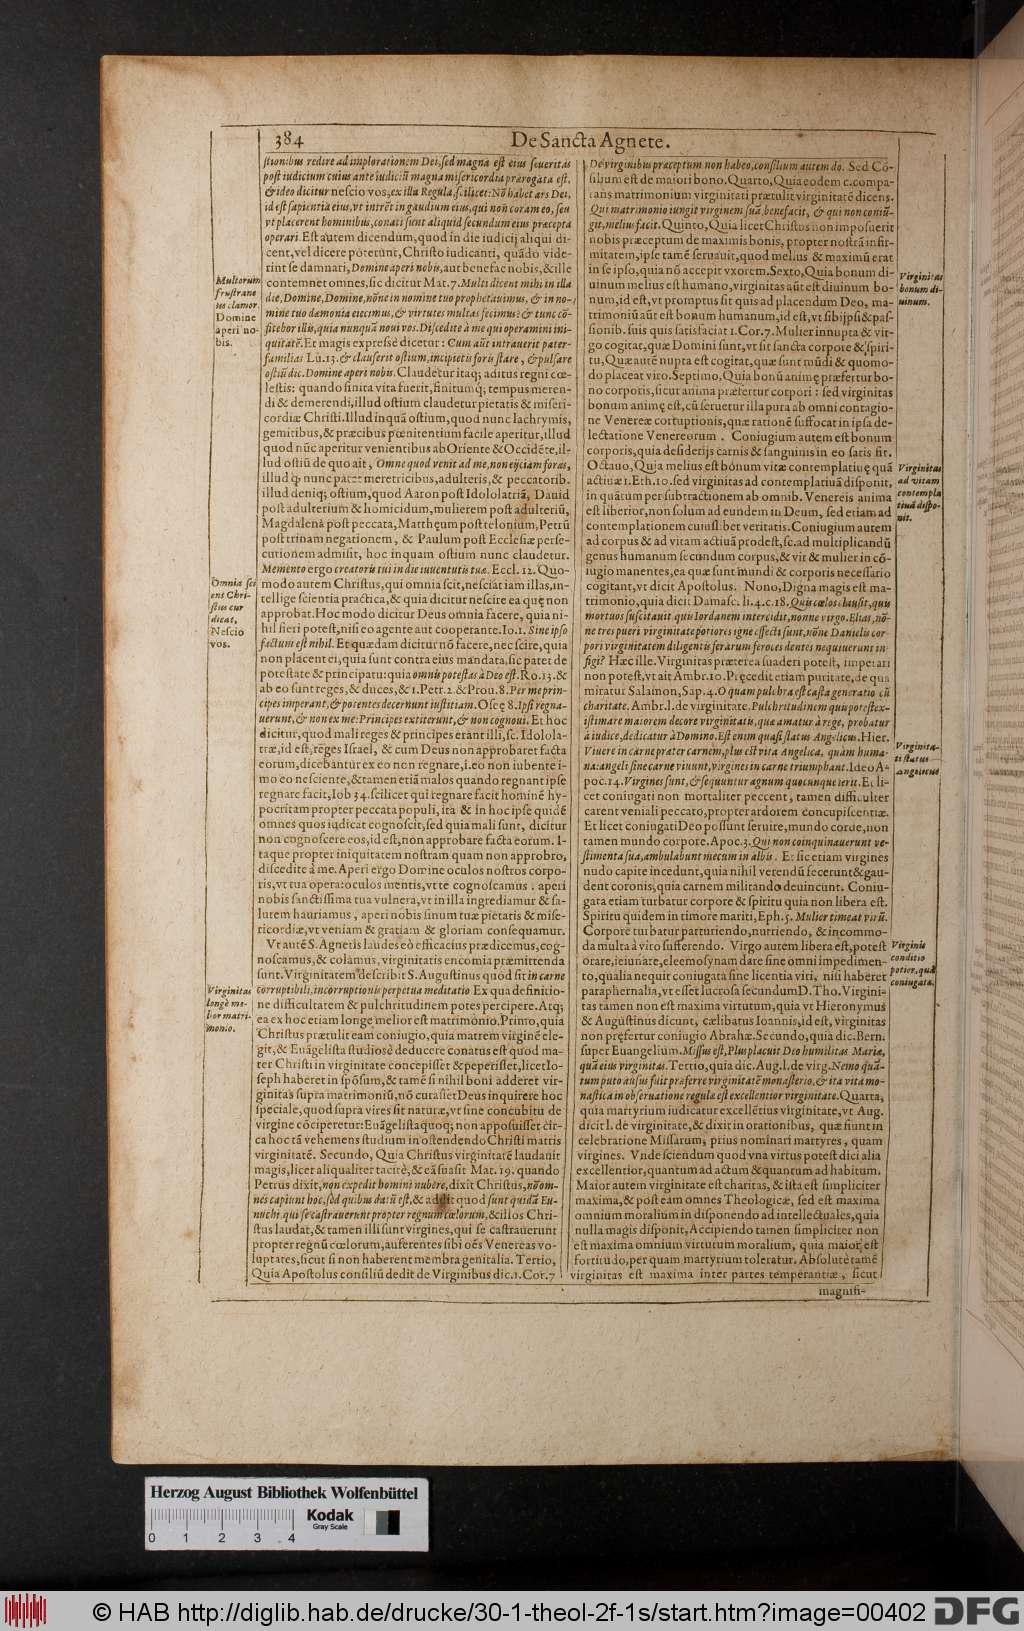 384
De Sancta Agnete.
stionibus redire ad implorationem Dei, sed magna est eius seueritas
post iudicium cuius ante iudiciũ magna misericordia prærogata est,
& ideo dicitur nescio vos, ex illa Regula, scilicet: Nõ habet ars Dei,
id est sapientia eius, vt intrẽt in gaudium eius, qui non coram eo, seu
vt placerent hominibus, conati sunt aliquid secundum eius præcepta
operari. Est autem dicendum, quod in die iudicij aliqui di-
cent, vel dicere poterunt, Christo iudicanti, quãdo vide-
rint se damnari, Domine aperi nobis, aut benefac nobis, & ille
contemnet omnes, sic dicitur Mat. 7. Multi dicent mihi in illa
die, Domine, Domine, nõne in nomine tuo prophetauimus, & in no-
mine tuo dæmonia eiecimus, & virtutes multas fecimus? & tunc cõ-
fitebor illis, quia nunquã noui vos. Discedite à me qui operamini ini-
quitatẽ. Et magis expresse dicetur: Cum aũt intrauerit pater-
familias Lu. 13. & clauserit ostium, incipietis foris stare, & pulsare
ostiũ dic. Domine aperi nobis. Claudetur itaq; aditus regni cœ-
lestis: quando finita vita fuerit, finitumq; tempus meren-
di & demerendi, illud ostium claudetur pietatis & miseri-
cordiæ Christi. Illud inquã ostium, quod nunc lachrymis,
gemitibus, & præcibus pœnitentium facile aperitur, illud
quod nũc aperitur venientibus ab Oriente & Occidẽte, il-
lud ostiũ de quo ait, Omne quod venit ad me, non eijciam foras,
illud q nunc patet meretricibus, adulteris, & peccatorib.
illud deniq; ostium, quod Aaron post Idololatriã, Dauid
post adulterium & homicidum, mulierem post adulteriũ,
Magdalenã post peccata, Matthęum post telonium, Petrũ
post trinam negationem, & Paulum post Ecclesiæ perse-
cutionem admisit, hoc inquam ostium nunc claudetur.
Memento ergo creatoris tui in die iuuentutis tuæ. Eccl. 12. Quo-
modo autem Christus, qui omnia scit, nesciat iam illas, in-
tellige scientia practica, & quia dicitur nescire ea quę non
approbat. Hoc modo dicitur Deus omnia facere, quia ni-
hil fieri potest, nisi eo agente aut cooperante. Io. 1. Sine ipso
factum est nihil. Et quædam dicitur nõ facere, nec scire, quia
non placent ei, quia sunt contra eius mandata, sic patet de
potestate & principatu: quia omnis potestas à Deo est. Ro. 13. &
ab eo sunt reges, & duces, & 1. Petr. 2. & Prou. 8. Per me prin-
cipes imperant, & potentes decernunt iustitiam. Oseę 8. Ipsi regna-
uerunt, & non ex me: Principes extiterunt, & non cognoui. Et hoc
dicitur, quod mali reges & principes erant illi, sc. Idolola-
træ, id est, reges Israel, & cum Deus non approbaret facta
eorum, dicebantur ex eo non regnare, i. eo non iubente i-
mo eo nesciente, & tamen etiã malos quando regnant ipse
regnare facit, Iob 34. scilicet qui regnare facit hominẽ hy-
pocritam propter peccata populi, ita & in hoc ipse quidẽ
omnes quos iudicat cognoscit, sed quia mali sunt, dicitur
non cognoscere eos, id est, non approbare facta eorum. I-
taque propter iniquitatem nostram quam non approbro,
discedite à me. Aperi ergo Domine oculos nostros corpo-
ris, vt tua opera: oculos mentis, vt te cognoscamus. aperi
nobis sanctissima tua vulnera, vt in illa ingrediamur & sa-
lutem hauriamus, aperi nobis sinum tuæ pietatis & mise-
ricordiæ, vt veniam & gratiam & gloriam consequamur.
Vt autẽ S. Agnetis laudes eò efficacius prædicemus, cog-
noscamus, & colamus, virginitatis encomia præmittenda
sunt. Virginitatem describit S. Augustinus quod sit in carne
corruptibili, incorruptionis perpetua meditatio Ex qua definitio-
ne difficultatem & pulchritudinem potes percipere. Atq;
ea ex hoc etiam longe melior est matrimonio. Primo, quia
Christus prætulit eam coniugio, quia matrem virginẽ ele-
git, & Euãgelista studiose deducere conatus est quod ma-
ter Christi in virginitate concepisset & peperisset, licet Io-
seph haberet in spõsum, & tamẽ si nihil boni adderet vir-
ginitas supra matrimoniũ, nõ curasset Deus inquirere hoc
speciale, quod supra vires sit naturæ, vt sine concubitu de
virgine cõciperetur: Euãgelista quoq; non apposuisset cir-
ca hoc tã vehemens studium in ostendendo Christi matris
virginitatẽ. Secundo, Quia Christus virginitatẽ laudauit
magis, licet aliqualiter tacitè, & eã suasit Mat. 19. quando
Petrus dixit, non expedit homini nubere, dixit Christus, nõ om-
nes capiunt hoc, sed quibus datũ est, & addit quod sunt quidã Eu-
nuchi, qui se castrauerunt propter regnum cœlorum, & illos Chri-
stus laudat, & tamen illi sunt virgines, qui se castrauerunt
propter regnũ cœlorum, auferentes sibi oẽs Venereas vo-
luptates, sicut si non haberent membra genitalia. Tertio,
Quia Apostolus consiliũ dedit de Virginibus dic. 1. Cor. 7
Multorum
frustrane
us clamor.
Domine
aperi no-
bis.
Omnia sci
ens Chri-
stus cur
dicat,
Nescio
vos.
Virginitas
longè me-
lior matri-
monio.
De virginibus præceptum non habeo, consilium autem do. Sed Cõ-
silium est de maiori bono. Quarto, Quia eodem c. compa-
rans matrimonium virginitati prætulit virginitatẽ dicens.
Qui matrimonio iungit virginem suã, benefacit, & qui non coniũ-
git, melius facit. Quinto, Quia licet Christus non imposuerit
nobis præceptum de maximis bonis, propter nostrã infir-
mitatem, ipse tamẽ seruauit, quod melius & maximũ erat
in se ipso, quia nõ accepit vxorem. Sexto, Quia bonum di-
uinum melius est humano, virginitas aũt est diuinum bo-
num, id est, vt promptus sit quis ad placendum Deo, ma-
trimoniũ aũt est bonum humanum, id est, vt sibi ipsi & pas-
sionib. suis quis satisfaciat 1. Cor. 7. Mulier innupta & vir-
go cogitat, quæ Domini sunt, vt sit sancta corpore & spiri-
tu, Quæ autẽ nupta est cogitat, quæ sunt mũdi & quomo-
do placeat viro. Septimo, Quia bonũ animę præfertur bo-
no corporis, sicut anima præfertur corpori: sed virginitas
bonum animę est, cũ seruetur illa pura ab omni contagio-
ne Venereæ corruptionis, quæ rationẽ suffocat in ipsa de-
lectatione Venereorum. Coniugium autem est bonum
corporis, quia desiderijs carnis & sanguinis in eo satis fit.
Octauo, Quia melius est bonum vitæ contemplatiuę quã
actiuæ 1. Eth. 10. sed virginitas ad contemplatiuã disponit,
in quãtum per subtractionem ab omnib. Venereis anima
est liberior, non solum ad eundem in Deum, sed etiam ad
contemplationem cuiuslibet veritatis. Coniugium autem
ad corpus & ad vitam actiuã prodest, sc. ad multiplicandũ
genus humanum secundum corpus, & vir & mulier in cõ-
iugio manentes, ea quæ sunt mundi & corporis necessario
cogitant, vt dicit Apostolus. Nono, Digna magis est ma-
trimonio, quia dicit Damasc. li. 4. c. 18. Quis cœlos clausit, quis
mortuos suscitauit quis Iordanem intercidit, nonne virgo. Elias, nõ-
ne tres pueri virginitate potiores igne effecti sunt, nõne Danielis cor-
pori virginitatem diligentis ferarum feroces dentes nequiuerunt in-
figi? Hæc ille. Virginitas præterea suaderi potest, imperari
non potest, vt ait Ambr. 10. Pręcedit etiam puritate, de qua
miratur Salamon, Sap. 4. O quam pulchra est casta generatio cũ
charitate. Ambr. l. de virginitate. Pulchritudinem quis potest ex-
istimare maiorem decore virginitatis, quæ amatur à rege, probatur
à iudice, dedicatur à Domino. Est enim quasi status Angelicus. Hier.
Viuere in carne præter carnem, plus est vita Angelica, quàm huma-
na: angeli sine carne viuunt, virgines in carne triumphant. Ideo A-
poc. 14. Virgines sunt, & sequuntur agnum quocunque ierit. Et li-
cet coniugati non mortaliter peccent, tamen difficulter
carent veniali peccato, propter ardorem concupiscentiæ.
Et licet coniugati Deo possunt seruire, mundo corde, non
tamen mundo corpore. Apoc. 3. Qui non coinquinauerunt ve-
stimenta sua, ambulabunt mecum in albis. Et sic etiam virgines
nudo capite incedunt, quia nihil verendũ fecerunt & gau-
dent coronis, quia carnem militando deuincunt. Coniu-
gata etiam turbatur corpore & spiritu quia non libera est.
Spiritu quidem in timore mariti, Eph. 5. Mulier timeat virũ.
Corpore turbatur parturiendo, nutriendo, & incommo-
da multa à viro sufferendo. Virgo autem libera est, potest
orare, ieiunare, eleemosynam dare sine omni impedimen-
to, qualia nequit coniugata sine licentia viri, nisi haberet
paraphernalia, vt esset lucrosa secundum D. Tho. Virgini-
tas tamen non est maxima virtutum, quia vt Hieronymus
& Augustinus dicunt, cælibatus Ioannis, id est, virginitas
non pręfertur coniugio Abrahæ. Secundo, quia dic. Bern.
super Euangelium. Missus est, Plus placuit Deo humilitas Mariæ,
quã eius virginitas. Tertio, quia dic. Aug. l. de virg. Nemo quã-
tum puto ausus fuit præferre virginitatẽ monasterio, & ita vita mo-
nastica in obseruatione regulæ est excellentior virginitate. Quarta,
quia martyrium iudicatur excellẽtius virginitate, vt Aug.
dicit l. de virginitate, & dixit in orationibus, quæ fiunt in
celebratione Missarum, prius nominari martyres, quam
virgines. Vnde sciendum quod vna virtus potest dici alia
excellentior, quantum ad actum & quantum ad habitum.
Maior autem virginitate est charitas, & ista est simpliciter
maxima, & post eam omnes Theologicæ, sed est maxima
omnium moralium in disponendo ad intellectuales, quia
nulla magis disponit, Accipiendo tamen simpliciter non
est maxima omnium virtutum moralium, quia maior est
fortitudo, per quam martyrium toleratur. Absolutè tamẽ
virginitas est maxima inter partes temperantiæ, sicut
magnifi-
Virginitas
bonum di-
uinum.
Virginitas
ad vitam
contempla
tiuã dispo-
nit.
Virginita-
ti status
angelicus
Virginis
conditio
potior, quã
coniugatæ.
Herzog August Bibliothek Wolfenbüttel
Kodak
Gray Scale
0 1 2 3 4
© HAB http://diglib.hab.de/drucke/30-1-theol-2f-1s/start.htm?image=00402
DFG